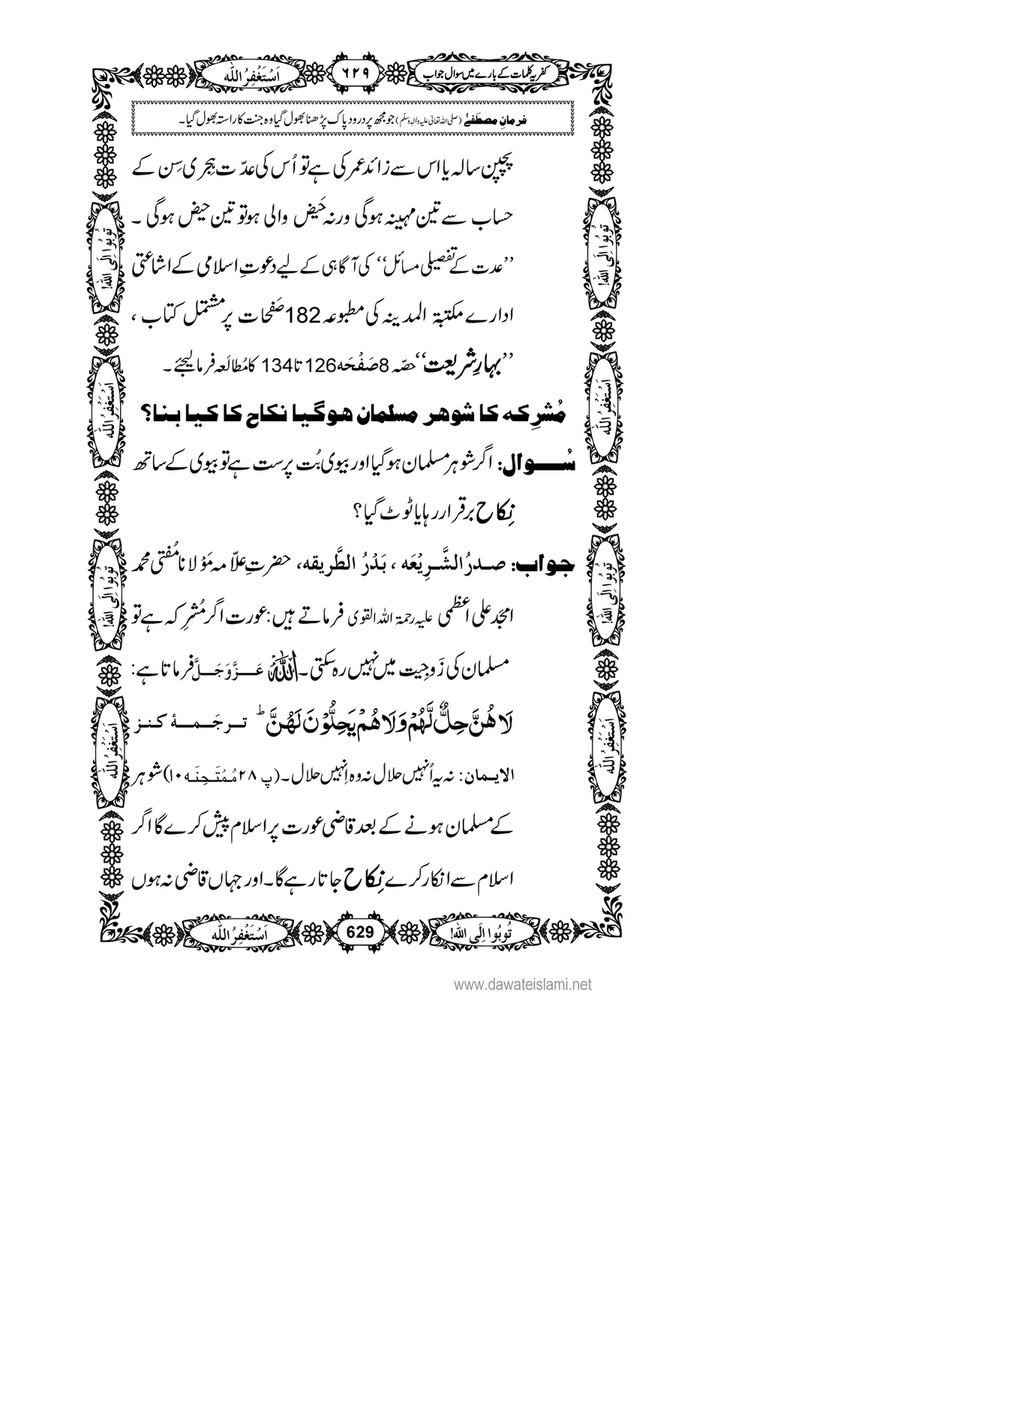 کفریہ کلمات کے بارے میں سوال جواب
٦٢٩
اَسْتَغْفِرُ اللّٰه
فرمانِ مصطَفٰے (صلی اللہ تعالیٰ علیہ واٰلہٖ وسلّم) جو مجھ پر درود پاک پڑھنا بھول گیا وہ جنت کا راستہ بھول گیا۔
پچپن سالہ یا اس سے زائد عمر کی ہے تو اُس کی عدّت ہِجری سِن کے
حساب سے تین مہینہ ہوگی ورنہ حَیض والی ہو تو تین حیض ہوگی ۔
’’عدت کے تفصیلی مسائل‘‘ کی آگاہی کے لیے دعوتِ اسلامی کے اشاعتی
ادارے مکتبۃ المدینہ کی مطبوعہ 182 صَفَحات پر مُشتمل کتاب ،
’’بہارِ شریعت‘‘ حصّہ 8 صَفْحَہ 126 تا 134 کا مُطالَعہ فرمالیجئے ۔
مُشرِکہ کا شوہر مسلمان ہوگیا نکاح کا کیا بنا؟
سُوال: اگر شوہر مسلمان ہو گیا اور بیوی بُت پرست ہے تو بیوی کے ساتھ
نِکاح برقرار رہا یا ٹوٹ گیا؟
جواب: صدرُ الشَّرِیْعَہ ، بَدْرُ الطَّریقہ، حضرتِ علّامہ مَوْلانا مُفتی محمد
امجد علی اعظمی علیہ رحمۃ اللہ القوی فرماتے ہیں: عورت اگر مُشرِکہ ہے تو
مسلمان کی زَوجِیت میں نہیں رہ سکتی۔ اللّٰہ عَزَّوَجَلَّ فرماتا ہے:
لَا هُنَّ حِلٌّ لَّهُمْ وَلَا هُمْ يَحِلُّوْنَ لَهُنَّ ؕ ترجَمۂ کنز
الایمان: نہ یہ اُنہیں حلال نہ وہ اِنہیں حلال۔ (پ ۲۸ مُمْتَحِنَہ ۱۰) شوہر
کے مسلمان ہونے کے بعد قاضی عورت پر اسلام پیش کرے گا اگر
اسلام سے انکار کرے نِکاح جاتا رہے گا۔ اور جہاں قاضی نہ ہوں
تُوبُوا اِلَی اللّٰه!
اَسْتَغْفِرُ اللّٰه
تُوبُوا اِلَی اللّٰه!
اَسْتَغْفِرُ اللّٰه
تُوبُوا اِلَی اللّٰه!
اَسْتَغْفِرُ اللّٰه
تُوبُوا اِلَی اللّٰه!
اَسْتَغْفِرُ اللّٰه
تُوبُوا اِلَی اللّٰه!
629
اَسْتَغْفِرُ اللّٰه
www.dawateislami.net